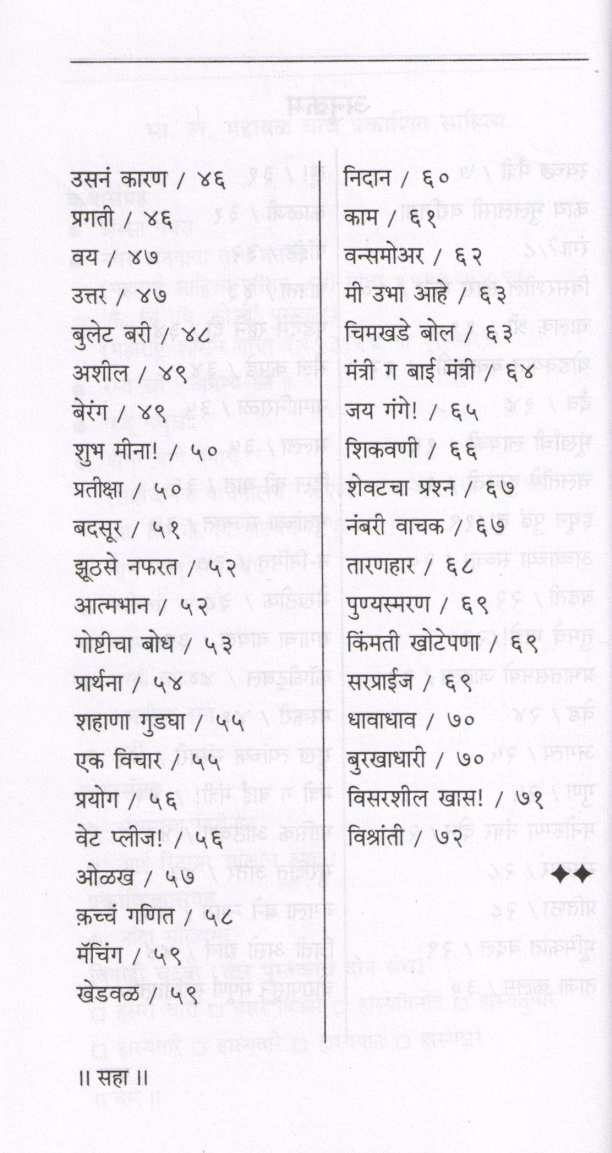 उसनं कारण / ४६
प्रगती / ४६
वय / ४७
उत्तर / ४७
बुलेट बरी / ४८
अशील / ४९
बेरंग / ४९
शुभ मीना! / ५०
प्रतीक्षा / ५०
बदसूर / ५१
झूठसे नफरत / ५२
आत्मभान / ५२
गोष्टीचा बोध / ५३
प्रार्थना / ५४
शहाणा गुडघा / ५५
एक विचार / ५५
प्रयोग / ५६
वेट प्लीज! / ५६
ओळख / ५७
क़च्चं गणित / ५८
मॅचिंग / ५९
खेडवळ / ५९
निदान / ६०
काम / ६१
वन्समोअर / ६२
मी उभा आहे / ६३
चिमखडे बोल / ६३
मंत्री ग बाई मंत्री / ६४
जय गंगे! / ६५
शिकवणी / ६६
शेवटचा प्रश्न / ६७
नंबरी वाचक / ६७
तारणहार / ६८
पुण्यस्मरण / ६९
किंमती खोटेपणा / ६९
सरप्राईज / ६९
धावाधाव / ७०
बुरखाधारी / ७०
विसरशील खास! / ७१
विश्रांती / ७२
॥ सहा ॥